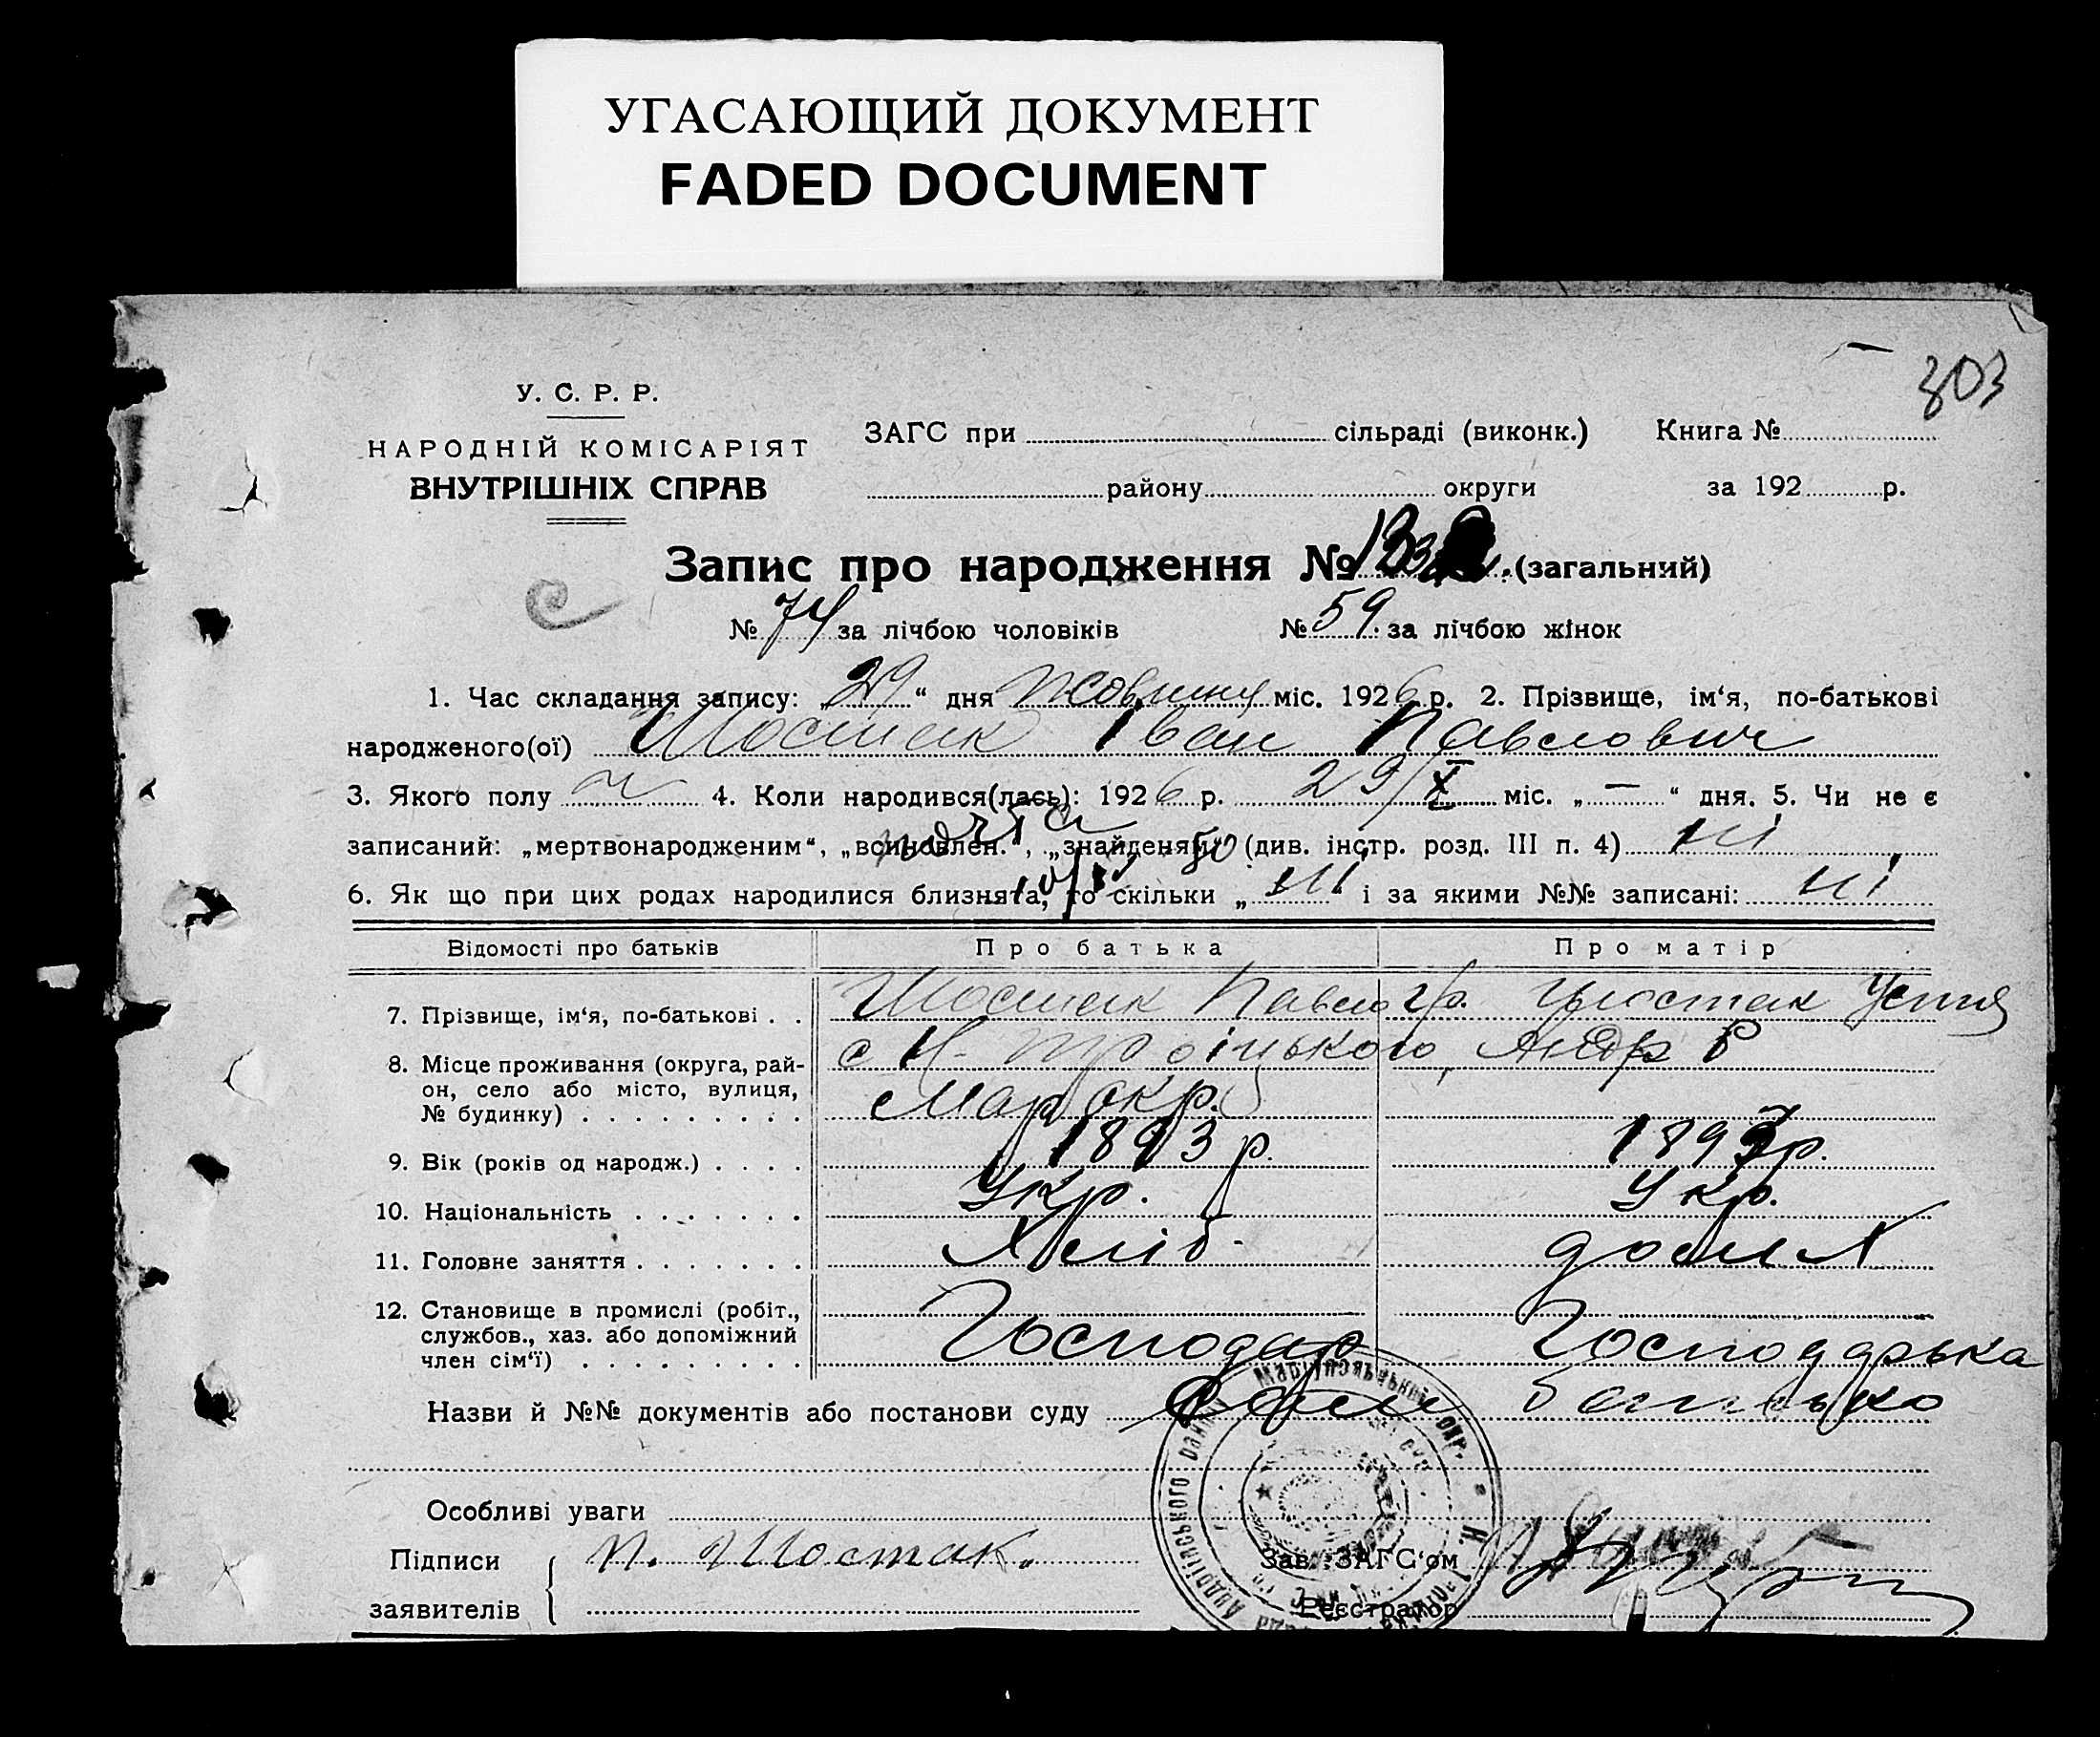 УГАСАЮЩИЙ ДОКУМЕНТ
FADED DOCUMENT
303
У. С. Р. Р.
НАРОДНІЙ КОМІСАРІЯТ
ВНУТРІШНІХ СПРАВ
ЗАГС при сільраді (виконк.) Книга №
району округи за 192 р.
Запис про народження № (загальний)
№ 74 за лічбою чоловіків № 59 за лічбою жінок
1. Час складання запису: „29“ дня жовтня міс. 1926 р. 2. Прізвище, ім‘я, по-батькові
народженого(ої) Шостак Іван Павлович
3. Якого полу ч 4. Коли народився(лась): 1926 р. 29/X міс. „—“ дня. 5. Чи не є
записаний: „мертвонародженим“, „всиновлен.“, „знайденям“ (див. інстр. розд. III п. 4) ні
6. Як що при цих родах народилися близнята, то скільки „ні“ і за якими №№ записані: ні
Відомості про батьків Про батька Про матір
7. Прізвище, ім‘я, по-батькові . . Шостак Павло Гр. Шостак Устя
8. Місце проживання (округа, рай-
он, село або місто, вулиця,
№ будинку) . . . . . . . . .
с Н. Троіцького, Андр Р
Мар окр.
9. Вік (років од народж.) . . . . 1893 р. 1897 р.
10. Національність . . . . . . . Укр. Укр.
11. Головне заняття . . . . . . . Хліб. дом Х
12. Становище в промислі (робіт.,
службов., хаз. або допоміжний
член сім‘ї) . . . . . . . . .
Господар Господарька
Назви й №№ документів або постанови суду Сам батько
Особливі уваги
Підписи
заявителів
П. Шостак.
Зав. ЗАГС‘ом
Реєстратор